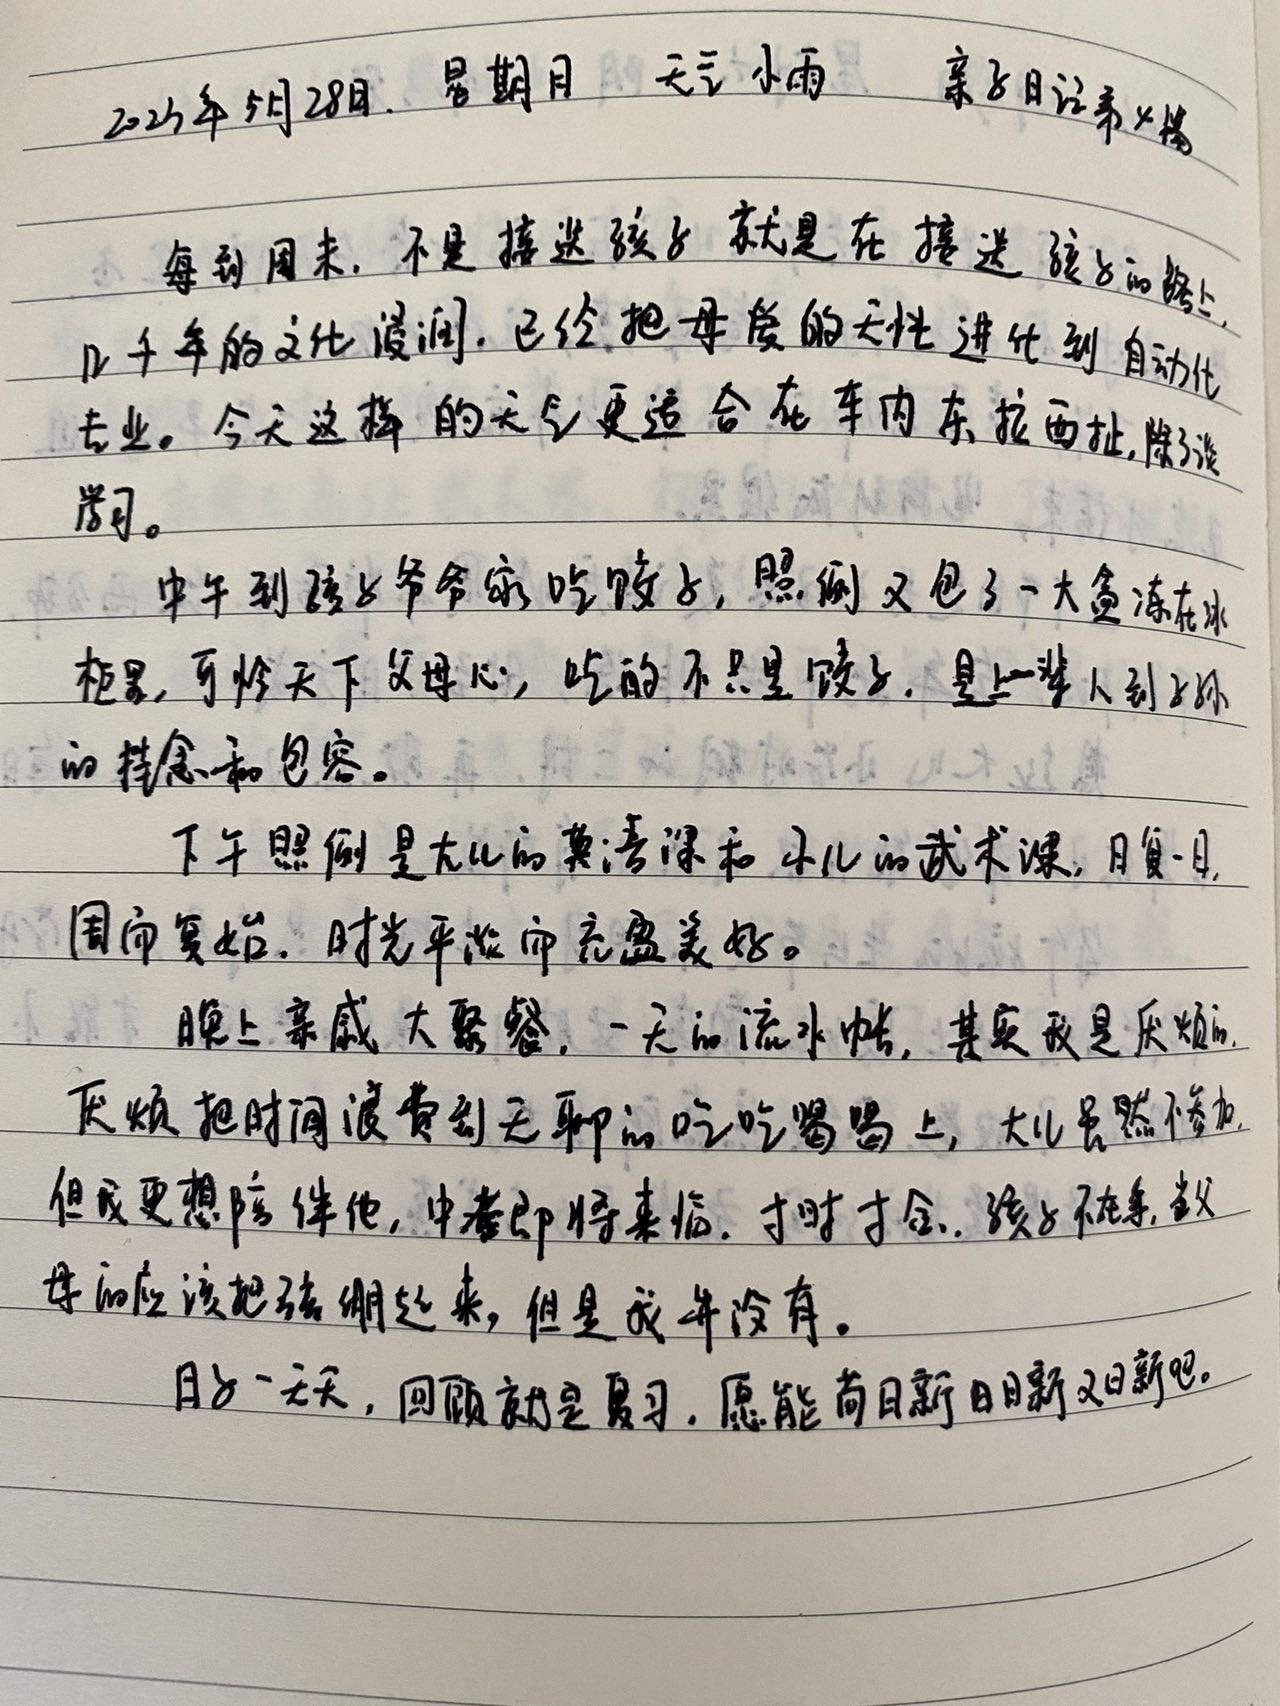 2023年5月28日. 星期日 天气小雨 亲子日记第4篇
每到周末,不是接送孩子就是在接送孩子的路上,
几千年的文化浸润.已经把母爱的天性进化到自动化
专业。今天这样的天气更适合在车内东拉西扯,除了谈
学习。
中午到孩子爷爷家吃饺子,照例又包了一大盒冻在冰
柜里,可怜天下父母心,吃的不只是饺子.是上一辈人到子孙
的挂念和包容。
下午照例是大儿的英语课和小儿的武术课,日复一日,
周而复始.时光平淡而充盈美好。
晚上亲戚大聚餐,一天的流水帐,其实我是厌烦的,
厌烦把时间浪费到无聊的吃吃喝喝上,大儿虽然不参加,
但我更想陪伴他,中考即将来临.寸时寸金.孩子不在乎,当父
母的应该把弦绷起来,但是我并没有。
日子一天天,回顾就是复习.愿能苟日新日日新又日新吧。